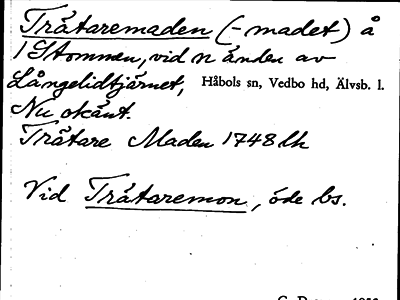 Tråtaremaden (-madet) å
1 Stommen, vid n änden av
Långelidtjärnet, Håbols sn, Vedbo hd, Älvsb. l.
Nu okänt.
Tråtare Maden 1748 lh
Vid Tråtaremon, öde bs.